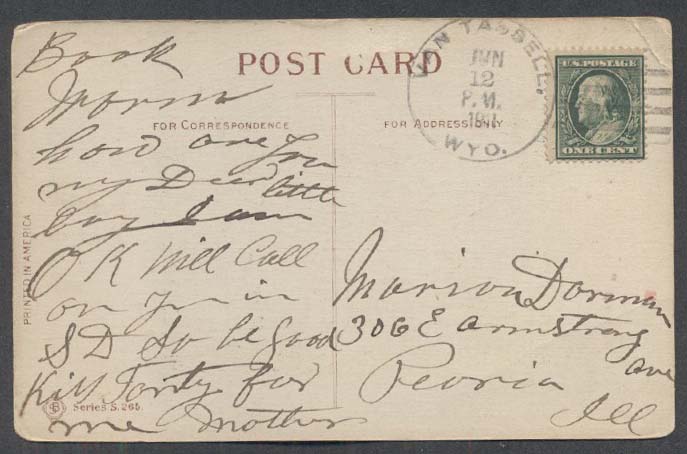 POST CARD
VAN TASSELL,
JUN
12
P.M.
1911
WYO.
U.S. POSTAGE
ONE CENT
FOR CORRESPONDENCE
FOR ADDRESS ONLY
PRINTED IN AMERICA
Book
Worm
how are you
my Dear little
boy I am
O K Will Call
on you in
S D So be good
Kiss for
me Mother
Series S. 265.
Marion Dorman
306 E Armstrong
ave
Peoria
Ill